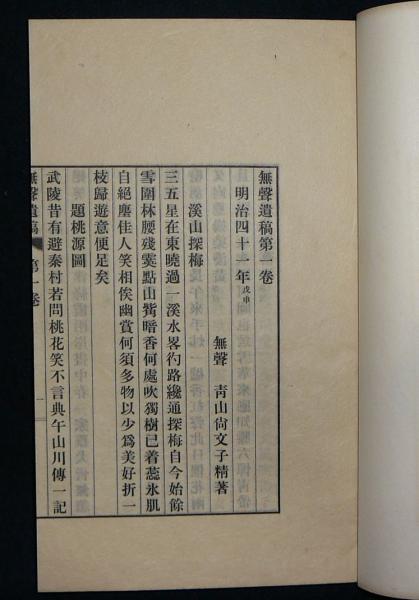 無聲遺稿第一卷
明治四十一年戊申
無聲 靑山尙文子精著
溪山探梅
三五星在東曉過一溪水畧彴路纔通探梅自今始餘
雪圍林腰殘霙點山觜暗香何處吹獨樹已着蕊氷肌
自絕塵佳人笑相俟幽賞何須多物以少爲美好折一
枝歸遊意便足矣
題桃源圖
武陵昔有避秦村若問桃花笑不言典午山川傳一記
無聲遺稿 第一卷 一